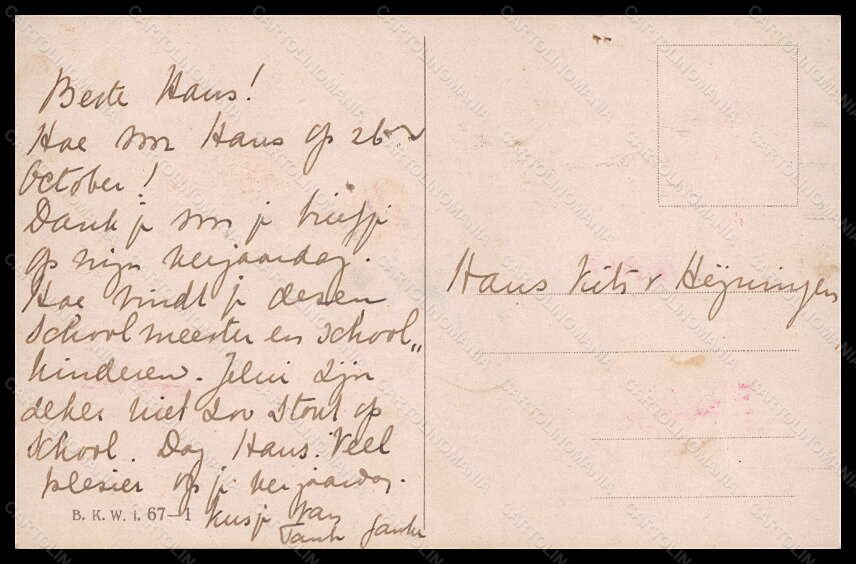 Beste Hans!
Hoe Hans op 26
October!
Dank je voor je briefje
op mijn verjaardag.
Hoe vindt je dezen
schoolmeester en school„
kinderen. Jelui zijn
zeker niet zoo stout op
school. Dag Hans. Veel
plezier op je verjaardag.
kusje van
Tante
B. K. W. i. 67—1
Hans v Heijningen
CARTOLINOMANIA